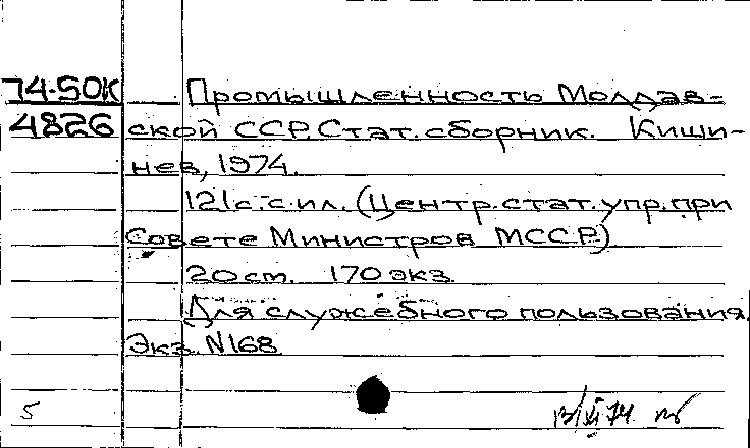 74-5ОК Промышленность Молдав-
4826 ской ССР. Стат. сборник. Киши-
нев, 1974.
121с. с ил. (Центр. стат. упр. при
Совете Министров МССР.)
20 ст. 170 экз.
Для служебного пользования.
Экз. N168
5